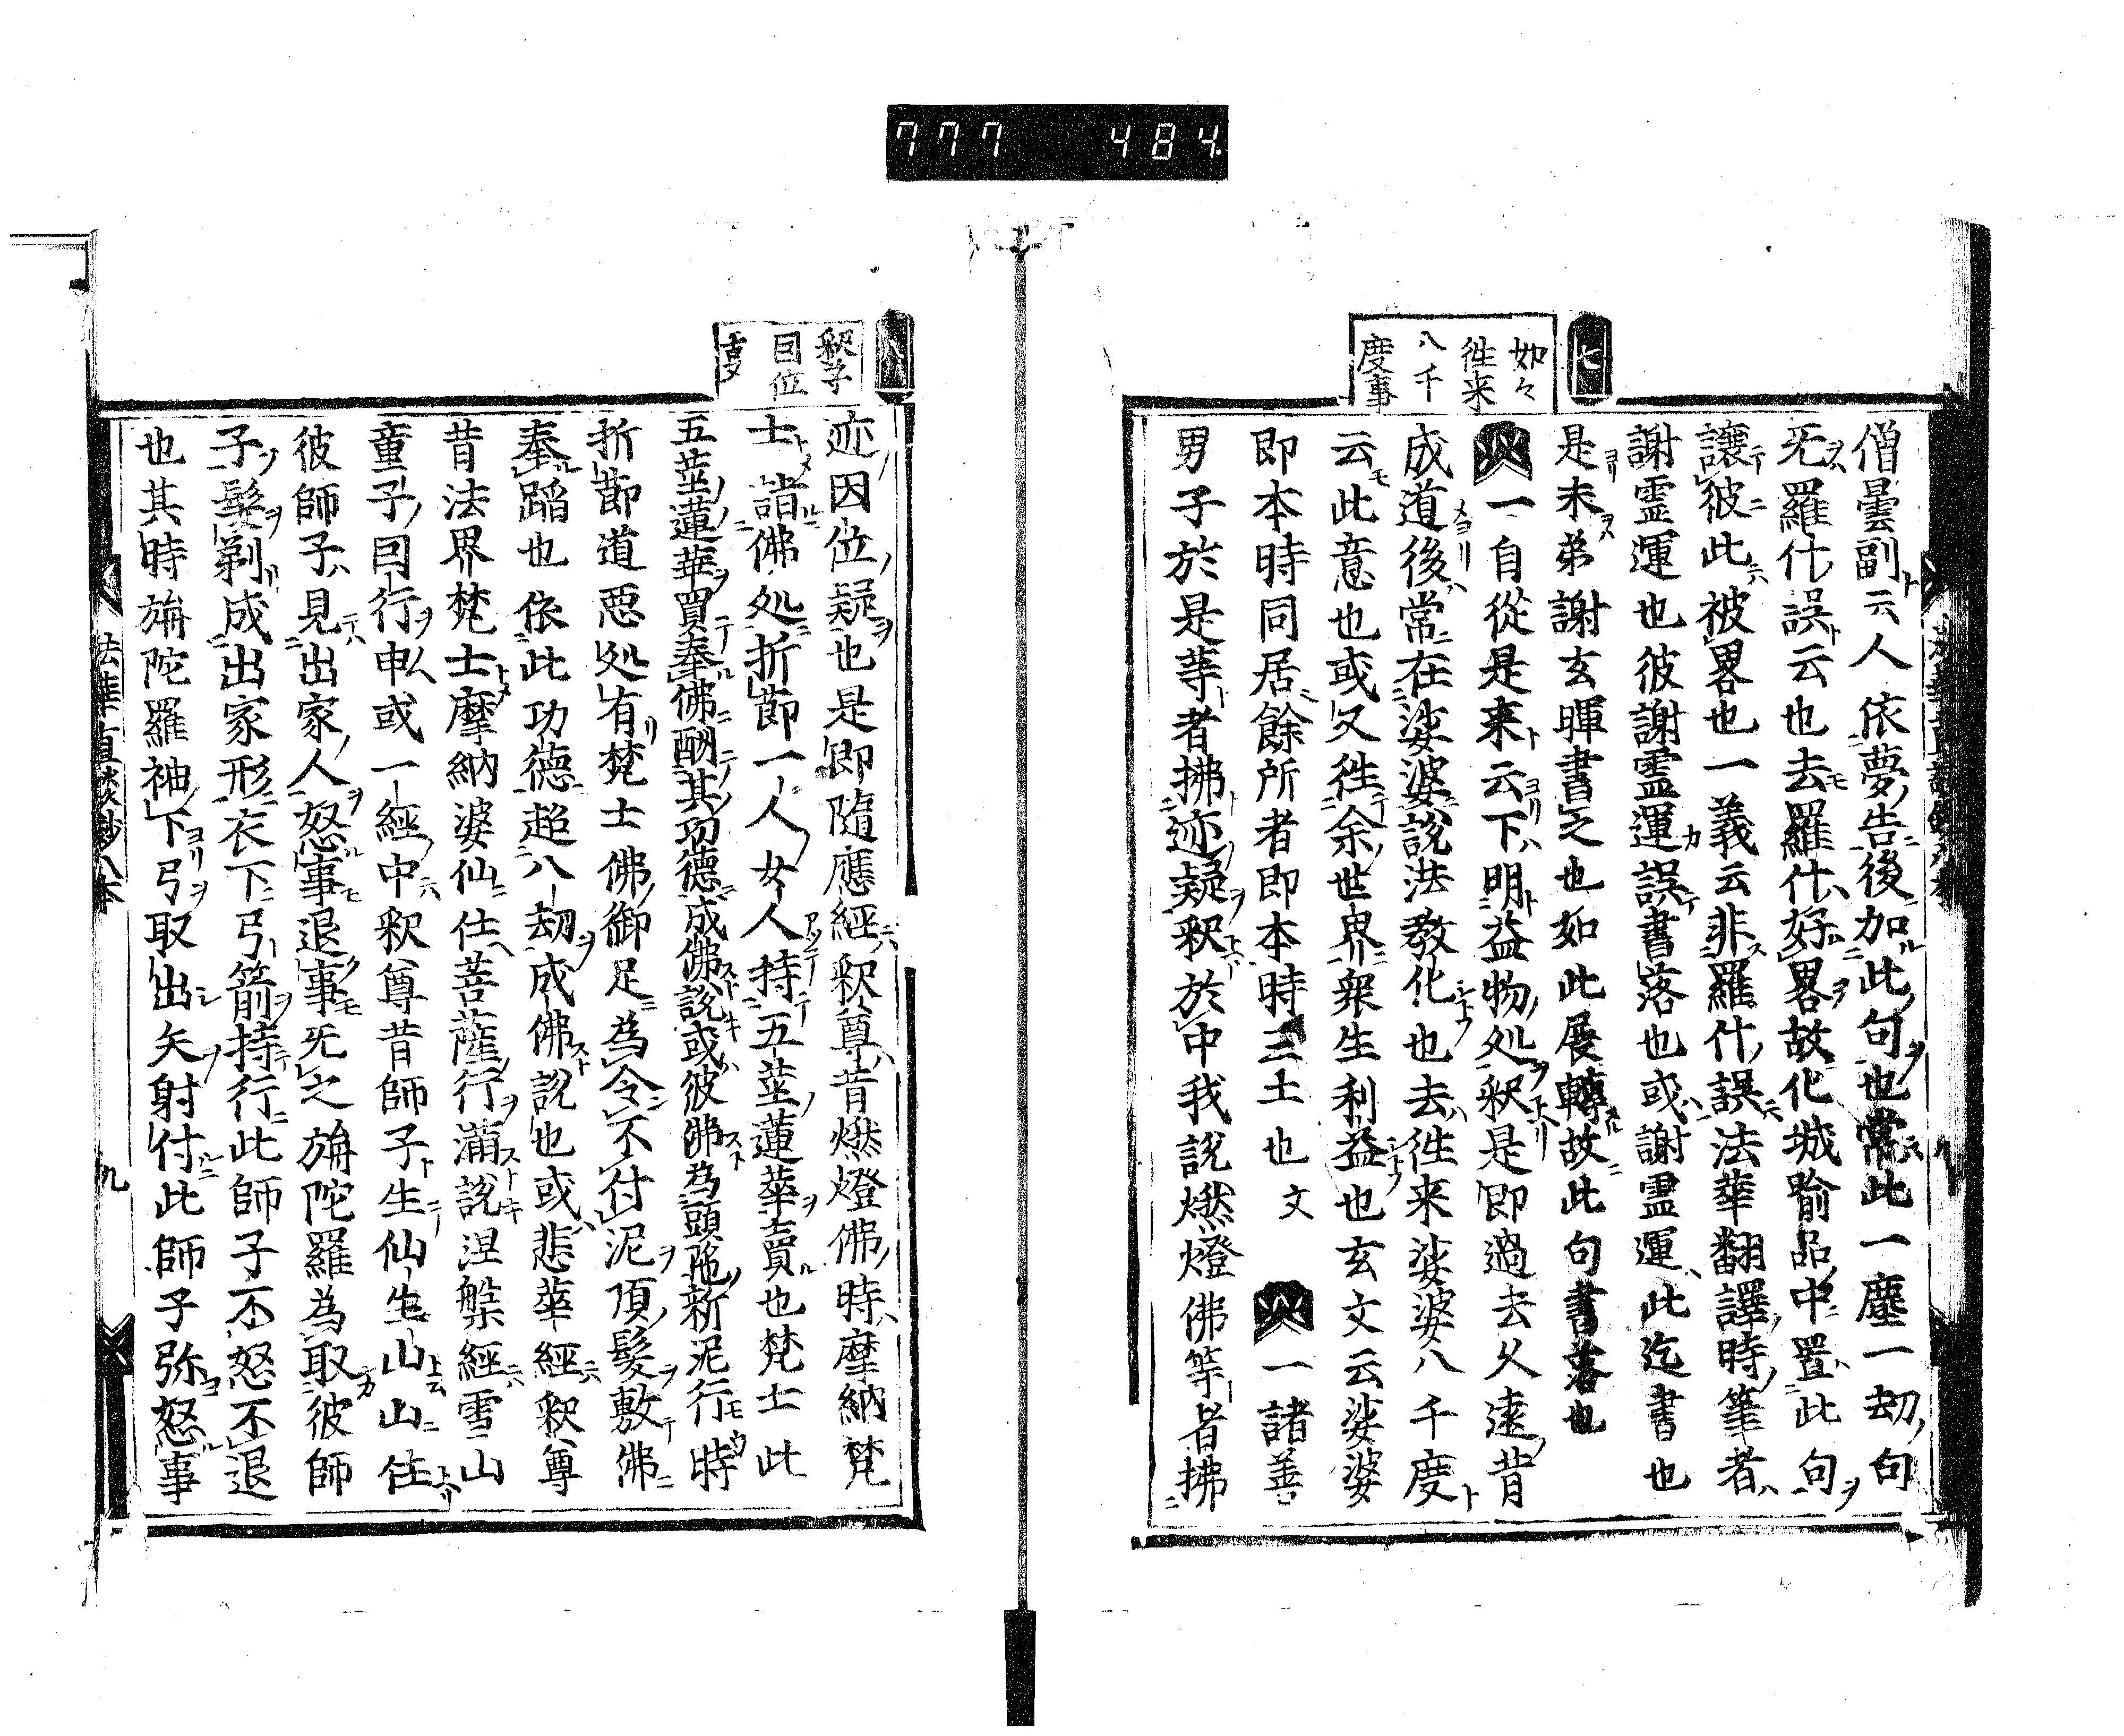 777 484
七
如々
徃来
八千
度事
僧曇副ト云人依夢告後加此句也常此一塵一劫句
旡羅什誤云也去羅什好畧故化城喩品中置此句
譲彼此被畧也一義云非羅什誤法華翻譯時筆者
謝霊運也彼謝霊運誤書落也或謝霊運此迄書也
是未弟謝玄暉書之也如此展轉故此句書落也
一自從是来云下明益物処釈是即過去久遠昔
成道後常在娑婆説法教化也去徃来娑婆八千度
云此意也或又徃余世界衆生利益也玄文云娑婆
即本時同居餘所者即本時三土也文 一諸善
男子於是䓁者拂迹疑釈於中我説燃燈佛等者拂
八
釈子
因位
事
迹因位疑也是即隨應經釈尊昔燃燈佛時摩納梵
士詣佛処折節一人女人持五莖蓮華賣也梵士此
五莖蓮華買奉佛酬其功德成佛説或彼佛為頭陁新泥行時
折節道悪処有梵士佛御足為令不付泥頂髮敷佛
奉蹈也依此功德超八劫成佛説也或悲華經釈尊
昔法界梵士摩納婆仙仕菩薩行満説涅槃經雪山
童子因行申或一經中釈尊昔師子生仙生山山住
彼師子見出家人怒事退事旡之旃陀羅為取彼師
子髮剃成出家形衣下弓箭持行此師子不怒不退
也其時旃陀羅袖下弓取出矢射付此師子弥怒事
法華直談鈔八本
九